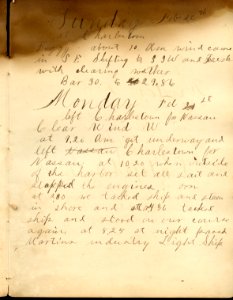 Sunday Feb 20th
at Charlestown
Foggy about 10 Am wind came
in S.E. Shifting to S.S.W and fresh
with clearing weather
Bar 30. to 29.86
Monday Feb 21st
left Charlestown for Nassau
Clear Wind W
at 9.20 Am got underway and
left Charlestown for
Nassau at 10.20 when outside
of the harbor set all sail and
stopped the engines
at 2.00 we tacked ship and stood
in shore and at 4.36 tacked
ship and stood on our course
again at 8.25 at night passed
Martins industry Light Ship